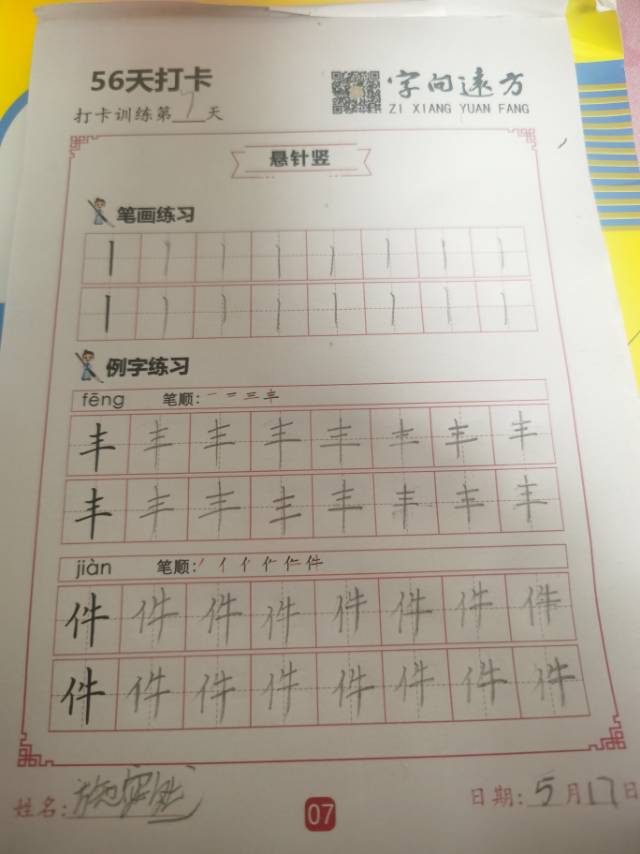 56天打卡
字向远方
打卡训练第7天
ZI XIANG YUAN FANG
悬针竖
笔画练习
丨丨丨丨丨丨丨丨
丨丨丨丨丨丨丨丨
例字练习
fēng 笔顺:一 二 三 丰
丰丰丰丰丰丰丰丰
丰丰丰丰丰丰丰丰
jiàn 笔顺:丿 亻 亻 仁 件
件件件件件件件件
件件件件件件件件
姓名:
07
日期:5月17日